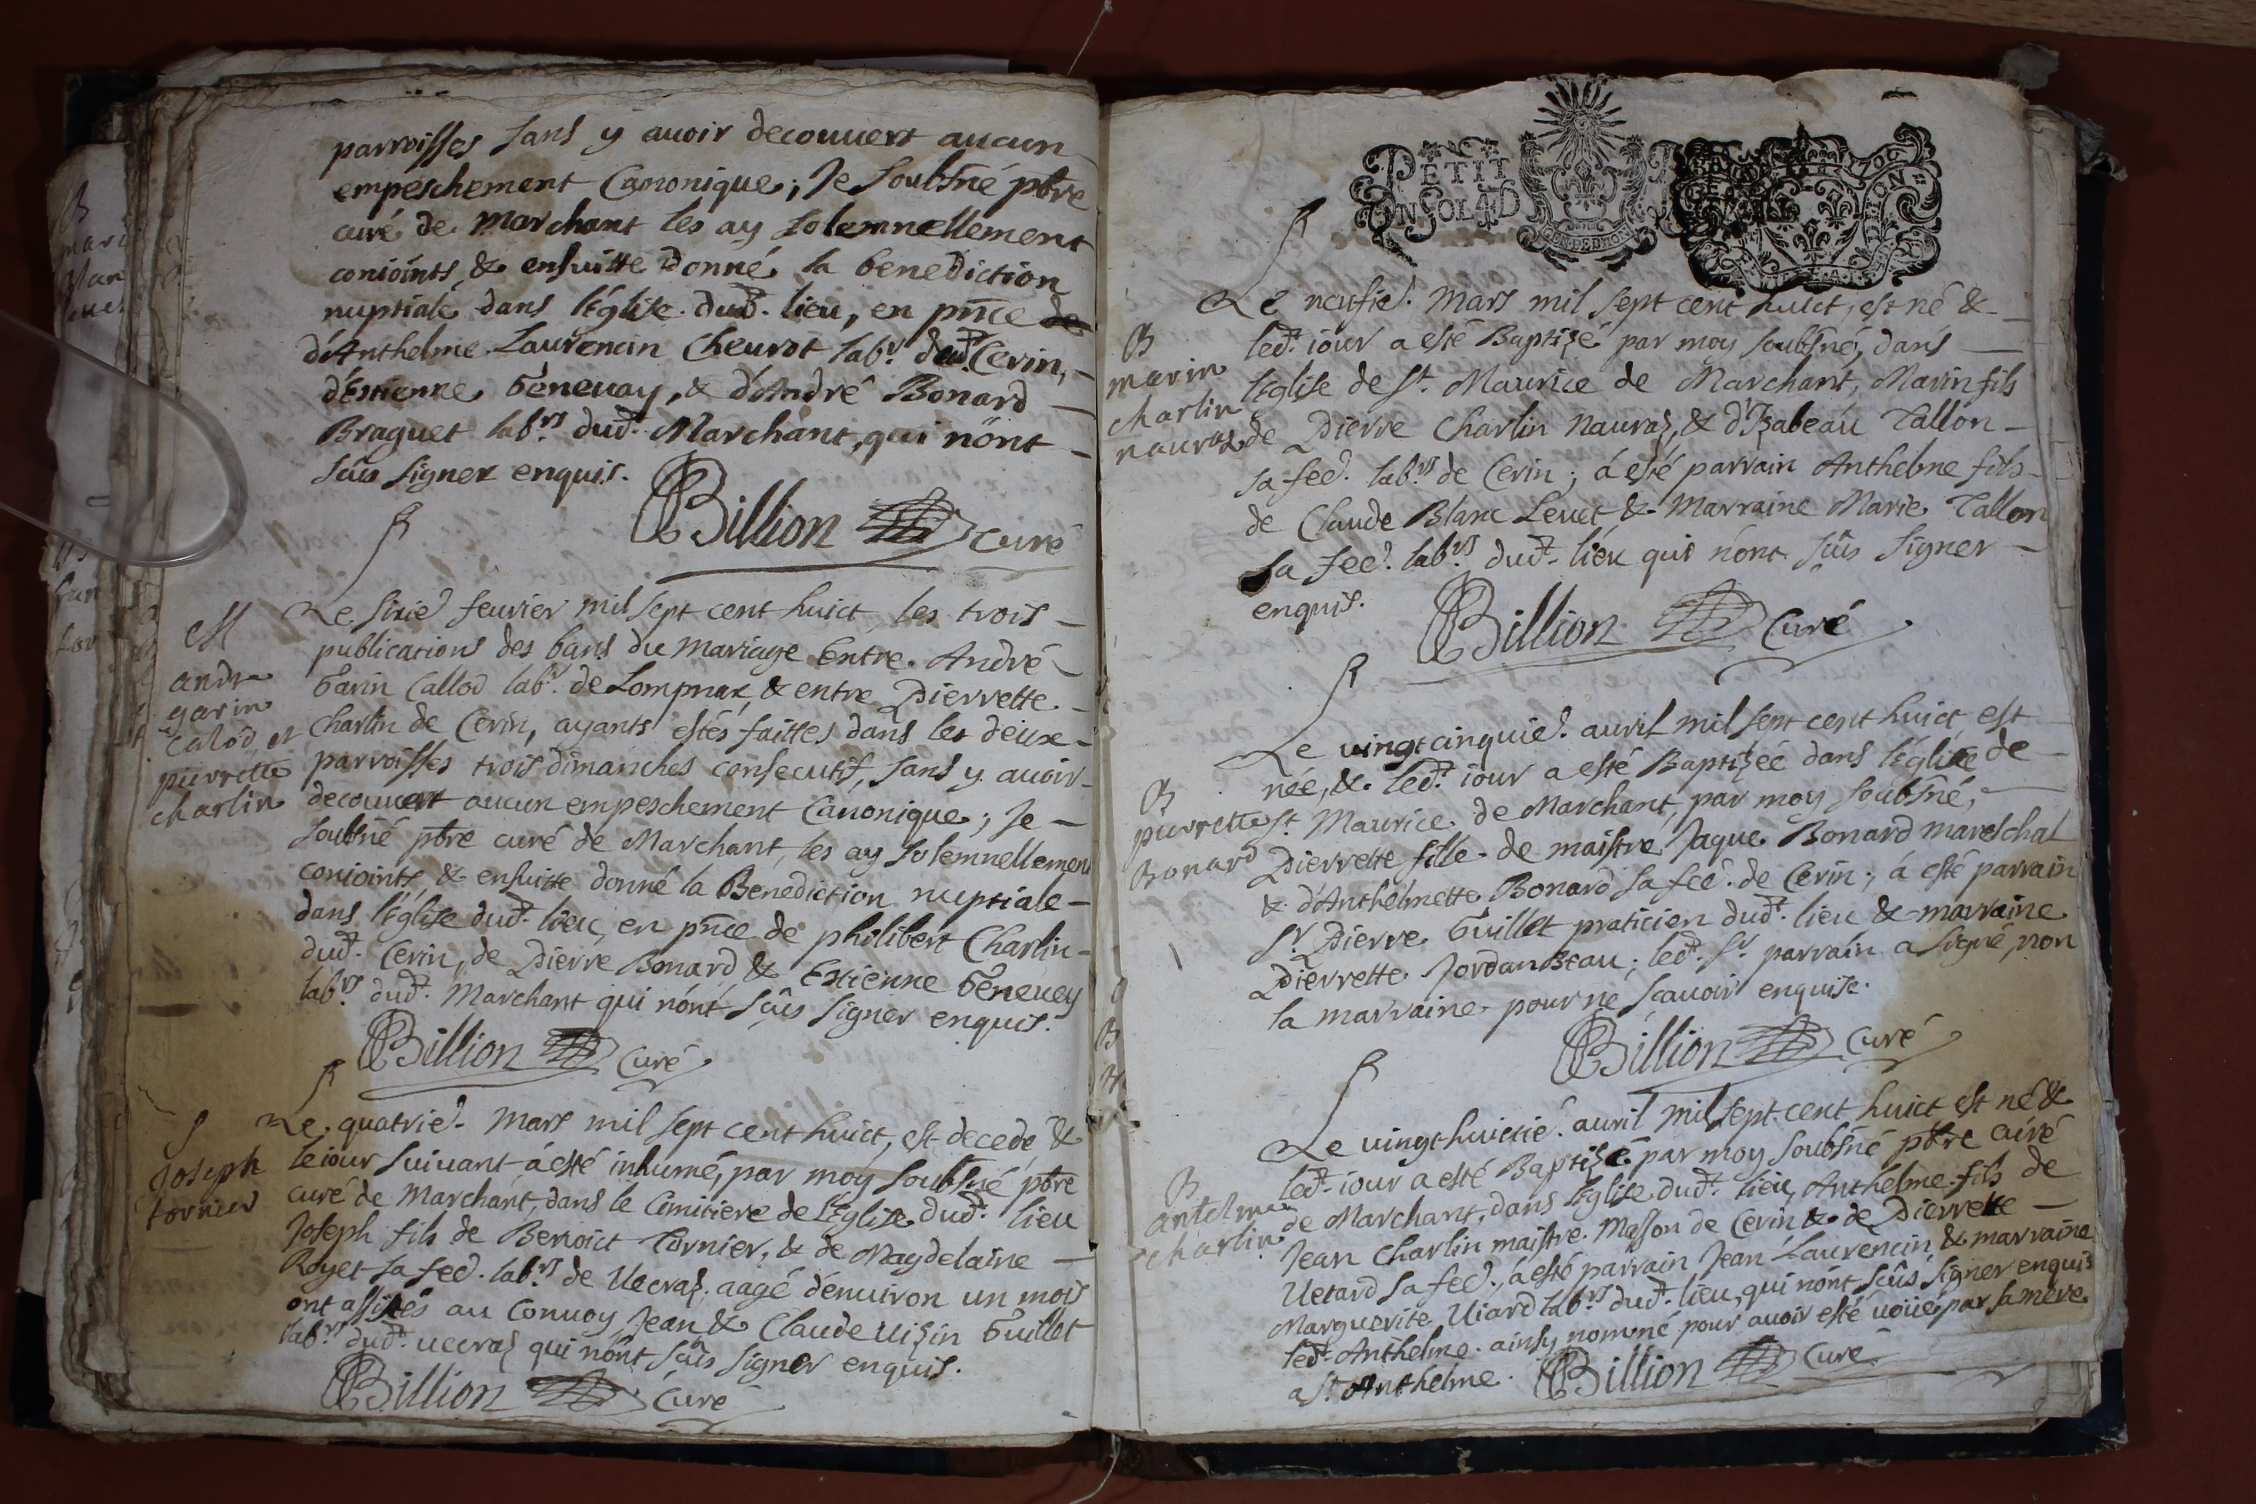 parroisses sans y auoir decouuert aucun
empeschement Canonique; Je soubsné pbre
curé de Marchant les ay solemnellement
conioints & ensuitte donné la benediction
nuptiale dans l'Eglise dud. lieu, en pnce de
d'Anthelme Laurencin Cheurot labr. dud. Cerin,
d'Estienne Geneuay, & d'André Bonard
Braguet labrs. dud. Marchant, qui n'ont
sûs signer enquis.
Billion curé
M
andre
garin
calod et
pierrette
charlin
Le sixie. feurier mil sept cent huict les trois
publications des bans du Mariage Entre André
Garin Callod labr. de Lompnaz, & entre Pierrette
Charlin de Cerin, ayants estés faittes dans les deux
parroisses trois dimanches consecutifs, sans y auoir
decouuert aucun empeschement Canonique; Je
soubsné pbre curé de Marchant, les ay solemnellement
conioints, & ensuitte donné la Benediction nuptiale
dans l'Eglise dud. lieu, en pnce de philibert Charlin
dud. Cerin, de Pierre Bonard & Estienne Geneuey
labrs. dud. Marchant qui n'ont sûs signer enquis.
Billion Curé
S
Joseph
tornier
Le quatrie. Mars mil sept cent huict, est decedé &
le iour suiuant a esté inhumé, par moy soubsné pbre
curé de Marchant, dans le Cimitiere de l'Eglise dud. lieu
Joseph fils de Benoict Tornier, & de Magdelaine
Royet sa fee. labrs. de Uecraz. aagé d'enuiron un mois
ont assistés au Conuoy Jean & Claude uizin Guillet
labrs. dud. uecraz qui n'ont sûs signer enquis.
Billion Curé
PETIT
EN SOL 4 D
B
marin
charlin
nauraz
Le neufie. Mars mil sept cent huict, est né &
led. iour a esté Baptizé par moy soubsné, dans
l'Eglise de St. Maurice de Marchant, Marin fils
de Pierre Charlin Nauraz, & d'Izabeau Tallon
sa fee. labrs. de Cerin; a esté parrain Anthelme fils
de Claude Blanc Leuet & Marraine Marie Tallon
sa fee. labrs. dud. lieu qui n'ont sûs signer
enquis.
Billion Curé
B
pierrette
Bonard
Le uingtcinquie. auril mil sept cent huict est
née, & led. iour a esté Baptizée dans l'Eglise de
St. Maurice de Marchant, par moy soubsné,
Pierrette fille de maistre Jaque Bonard mareschal
& d'Anthelmette Bonard sa fee. de Cerin; a esté parrain
Sr. Pierre Guillet praticien dud. lieu & marraine
Pierrette Jordan Beau; led. Sr. parrain a signé, non
la marraine pour ne sçauoir enquise.
Billion Curé
B
antelme
charlin
Le uingthuictie. auril mil sept cent huict est né &
led. iour a esté Baptizé par moy soubsné pbre curé
de Marchant, dans l'Eglise dud. lieu, Anthelme fils de
Jean Charlin maistre Masson de Cerin & de Pierrette
Uetard sa fee., a esté parrain Jean Laurencin, & marraine
Marguerite Uiard labrs. dud. lieu, qui n'ont sûs signer enquis
led. Anthelme ainsy nommé pour auoir esté uoüé par sa mere
a St. Anthelme. Billion Curé